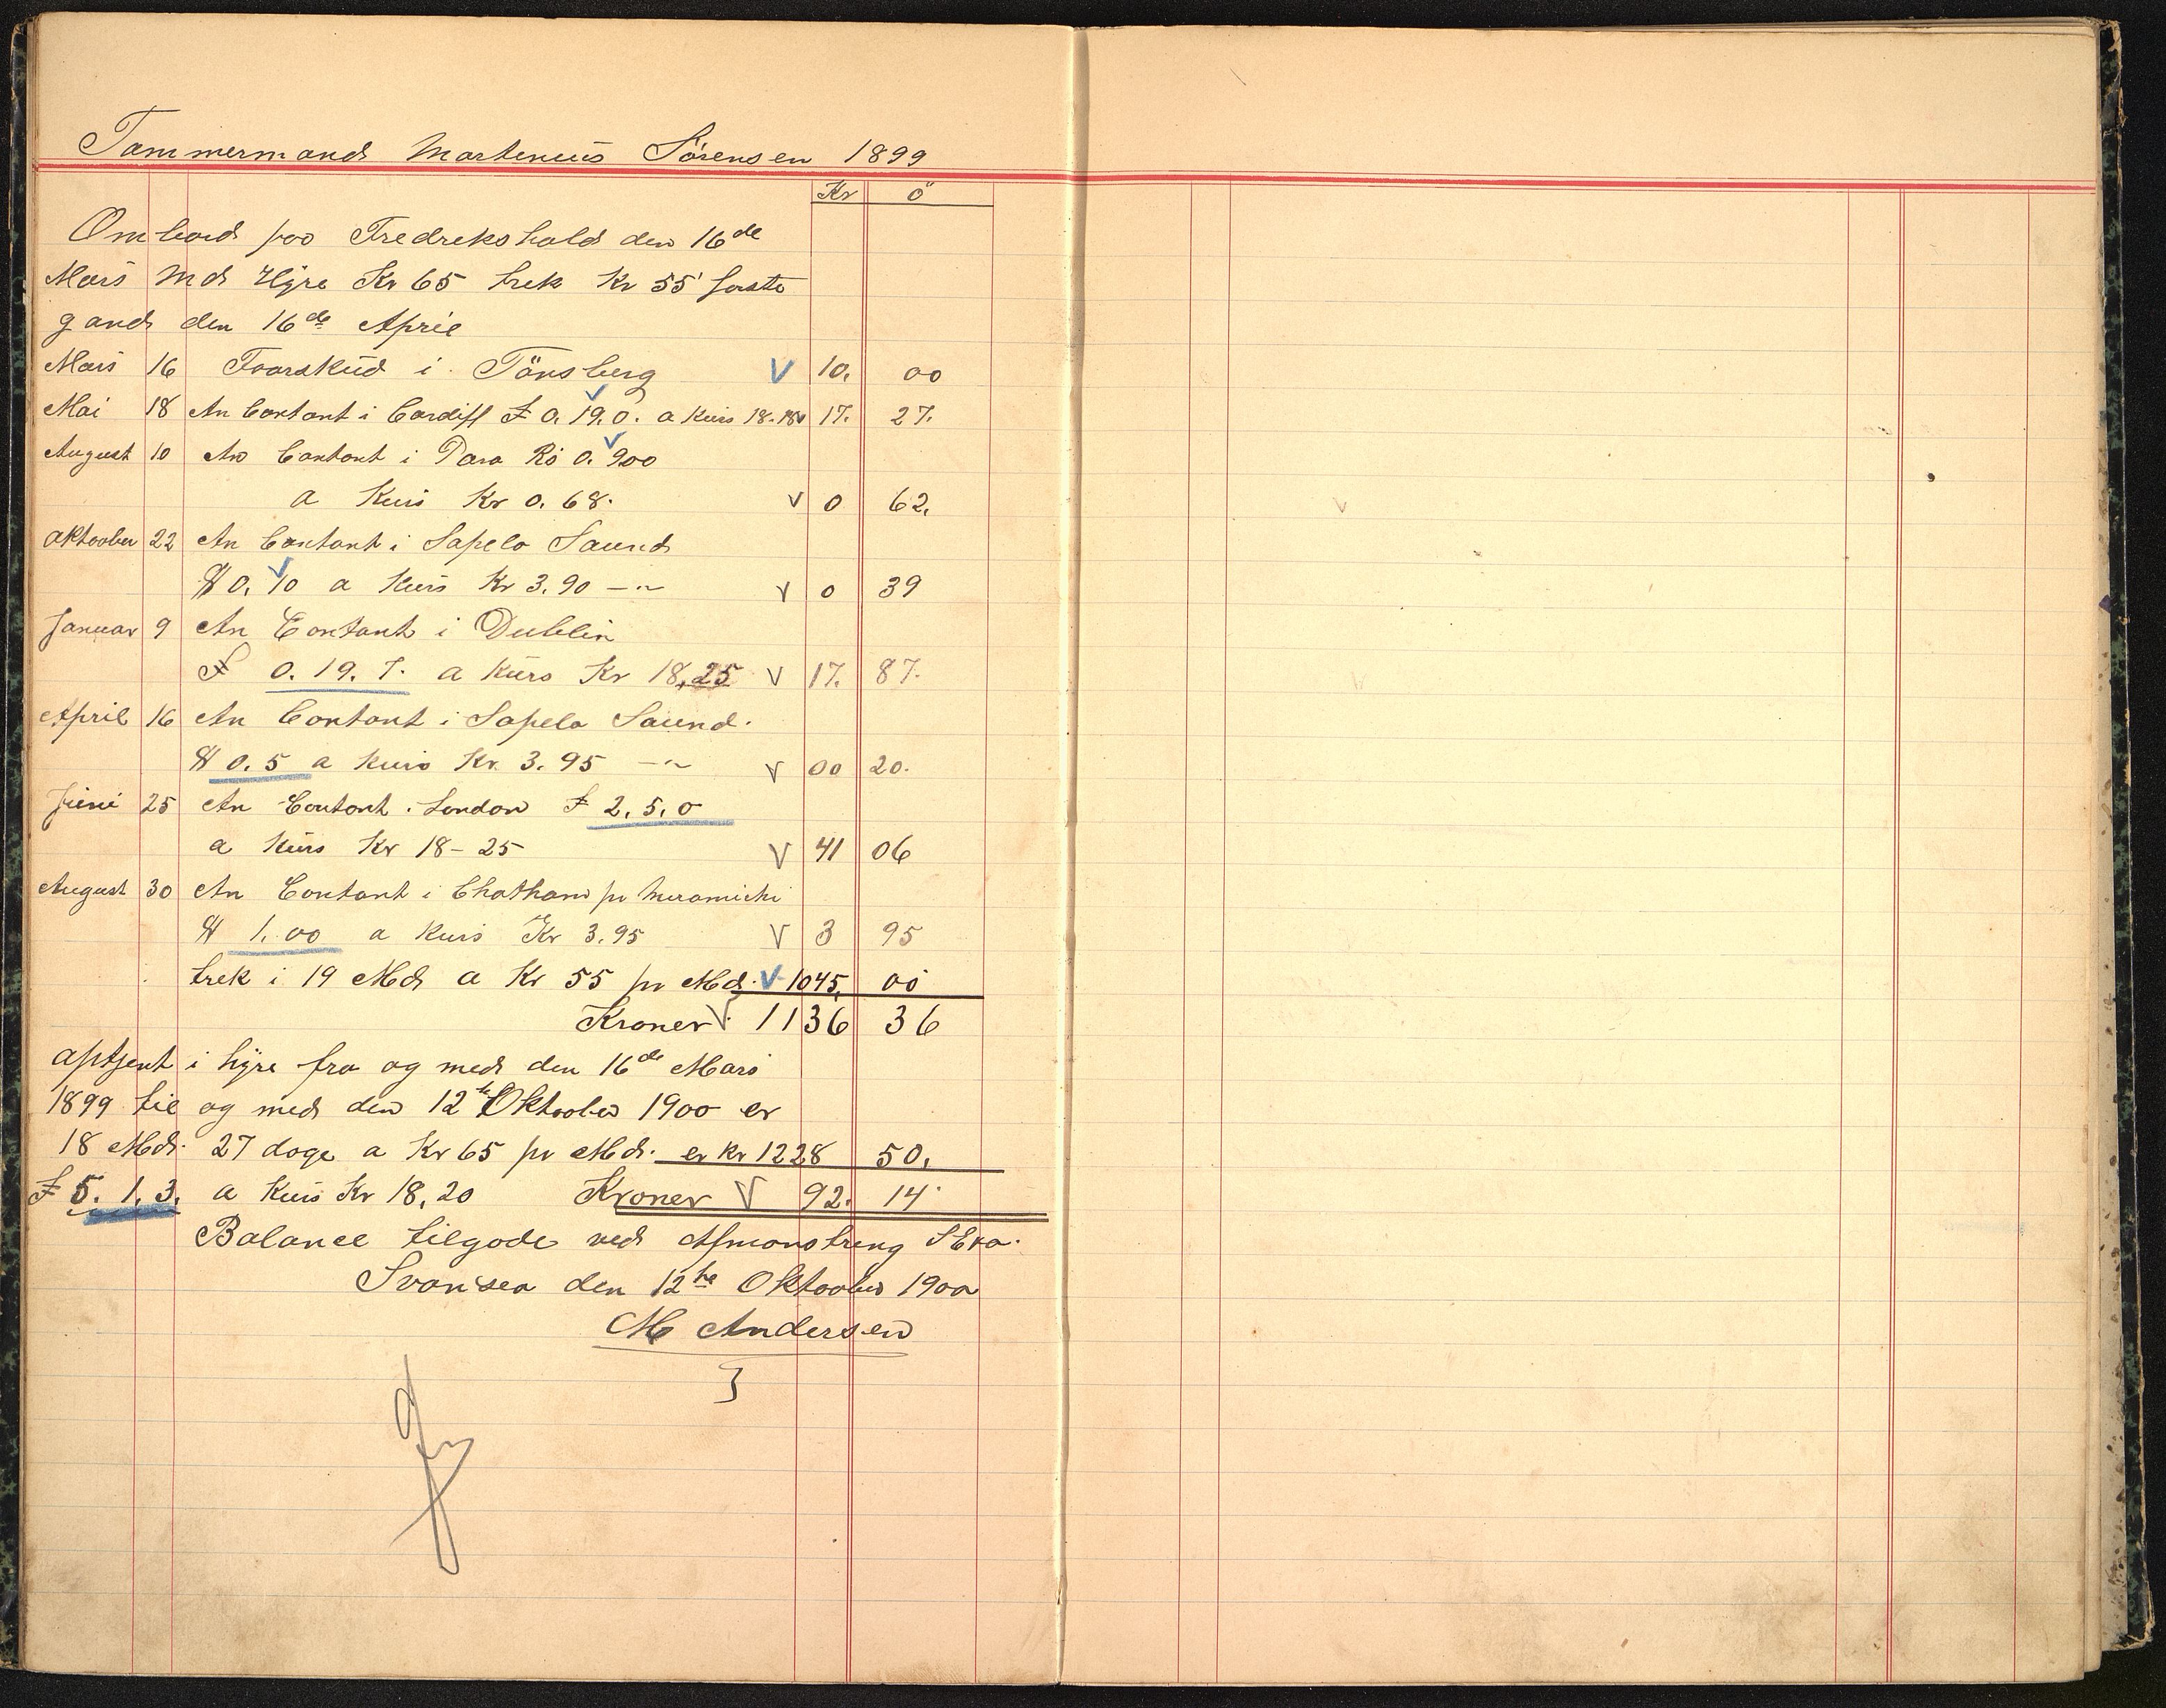 Tammermand Martenius Sörensen 1899
Kr ö
Ombord paa Fredrekshald den 16de
Mars Md Hyre Kr 65 trek Kr 55 forste
gand den 16de April
Mars 16 Foorskud i Tönsberg V 10. 00
Mai 18 An Contant i Cardiff £ 0. 19. 0. a Kurs 18-18 17. 27.
August 10 An Contant i Para Rs 0. 900
a Kurs Kr 0. 68. V 0 62.
Oktoober 22 An Contant i Sapelo Saund
$ 0. 10 a Kurs Kr 3. 90 —"— V 0 39
Januar 9 An Contant i Dublin
£ 0. 19. 7. a Kurs Kr 18,25 V 17. 87.
April 16 An Contant i Sapelo Saund.
$ 0. 5 a Kurs Kr. 3. 95 —"— V 00 20.
Juni 25 An Contant . London £ 2. 5. 0
a Kurs Kr 18-25 V 41 06
August 30 An Contant i Chatham pr Miramichi
$ 1. 00 a Kurs Kr 3.95 V 3 95
trek i 19 Md a Kr 55 pr Md. V 1045. 00
Kroner V 1136 36
aptjent i hyre fra og med den 16de Mars
1899 til og med den 12te Oktoober 1900 er
18 Md. 27 doge a Kr 65 pr Md. er kr 1228 50.
£ 5. 1. 3. a Kurs Kr 18,20 Kroner V 92. 14
Balance tilgode ved Afmonstreng
Svansea den 12te Oktoober 1900
M Andersen